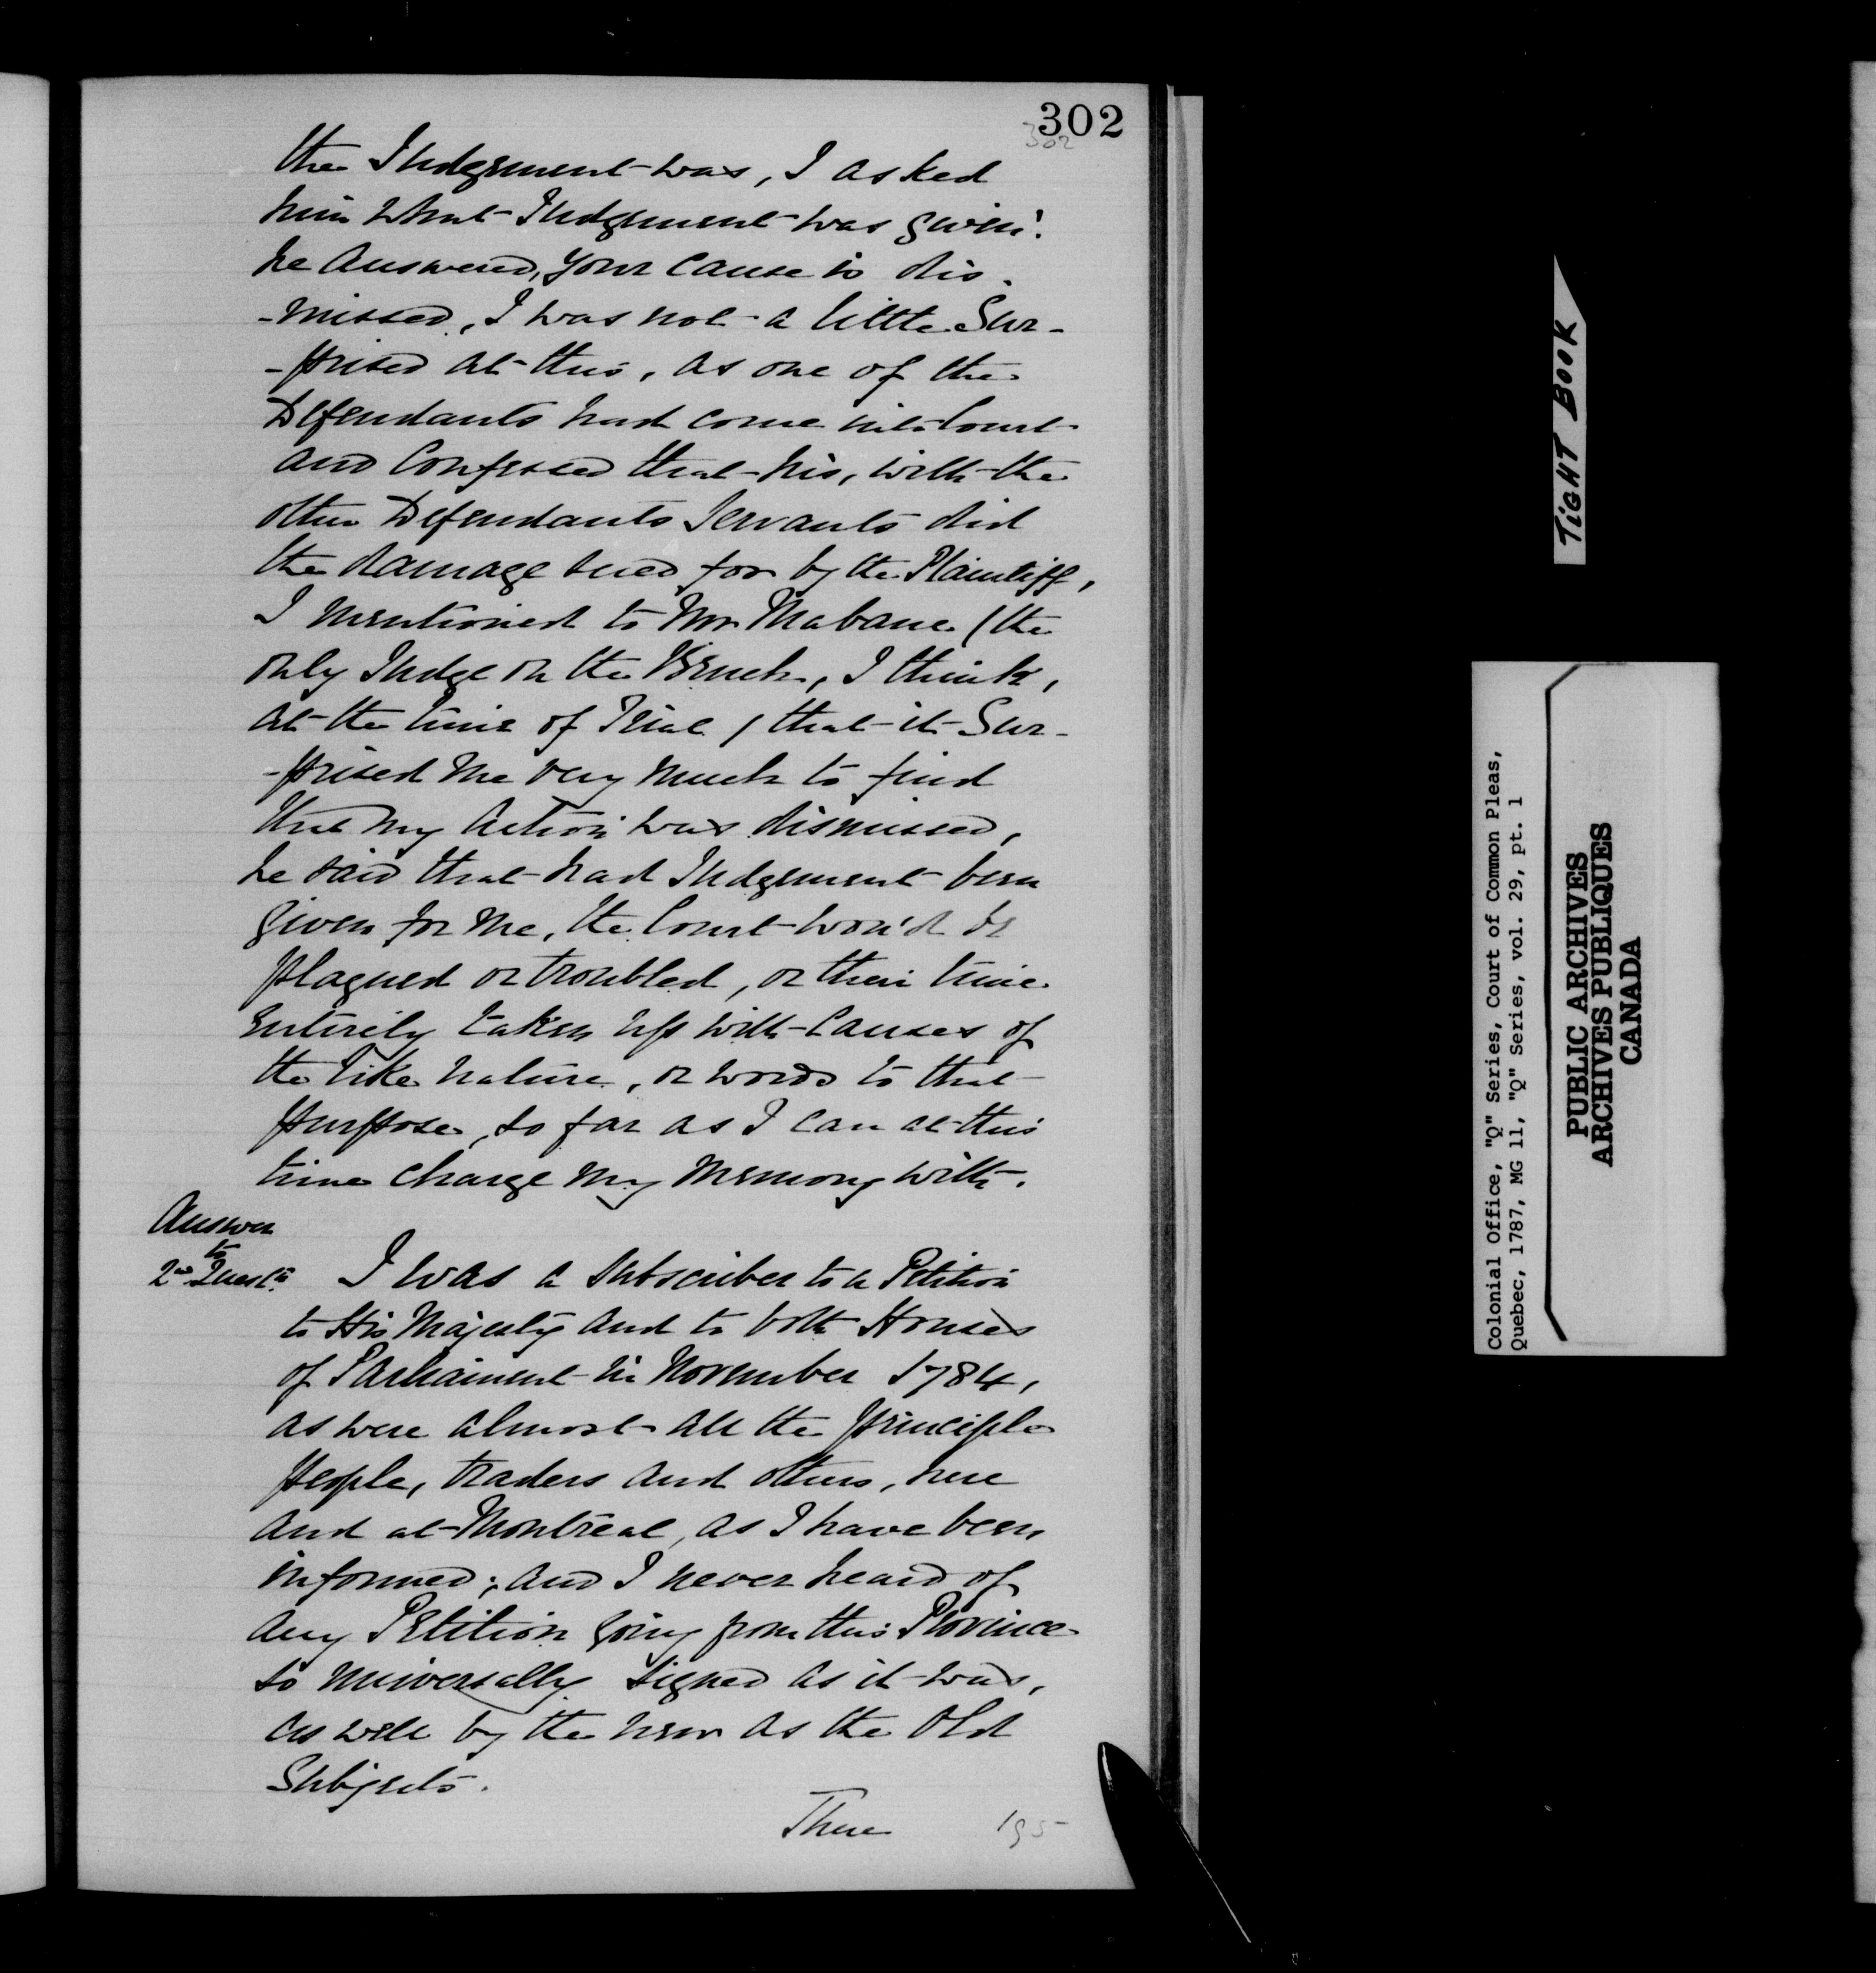 302
302
the Judgement was, I asked
him what Judgement was given?
he answered, your cause is dis-
-missed, I was not a little Sur-
-prised at this, as one of the
Defendants had come into Court
and Confessed that his, with the
other Defendants Servants did
the damage sued for by the Plaintiff,
I mentioned to Mr Mabane (the
only Judge on the Bench, I think,
at the time of Trial) that it Sur-
-prised me very much to find
that my Action was dismissed,
he said that had Judgement been
given for me, the Court wou'd be
plagued or troubled, or their time
entirely taken up with Causes of
the like nature, or words to that
purpose, so far as I can at this
time charge my memory with.
Answer
to
2nd Questn
I was a Subscriber to a Petition
to His Majesty and to both Houses
of Parliament in November 1784,
as were almost all the principle
people, traders and others, here
and at Montreal, as I have been
informed; and I never heard of
any Petition going from this Province
so universally signed as it was,
as well by the new as the Old
Subjects.
There
195
TIGHT BOOK
Colonial Office, "Q" Series, Court of Common Pleas,
Quebec, 1787, MG 11, "Q" Series, vol. 29, pt. 1
PUBLIC ARCHIVES
ARCHIVES PUBLIQUES
CANADA